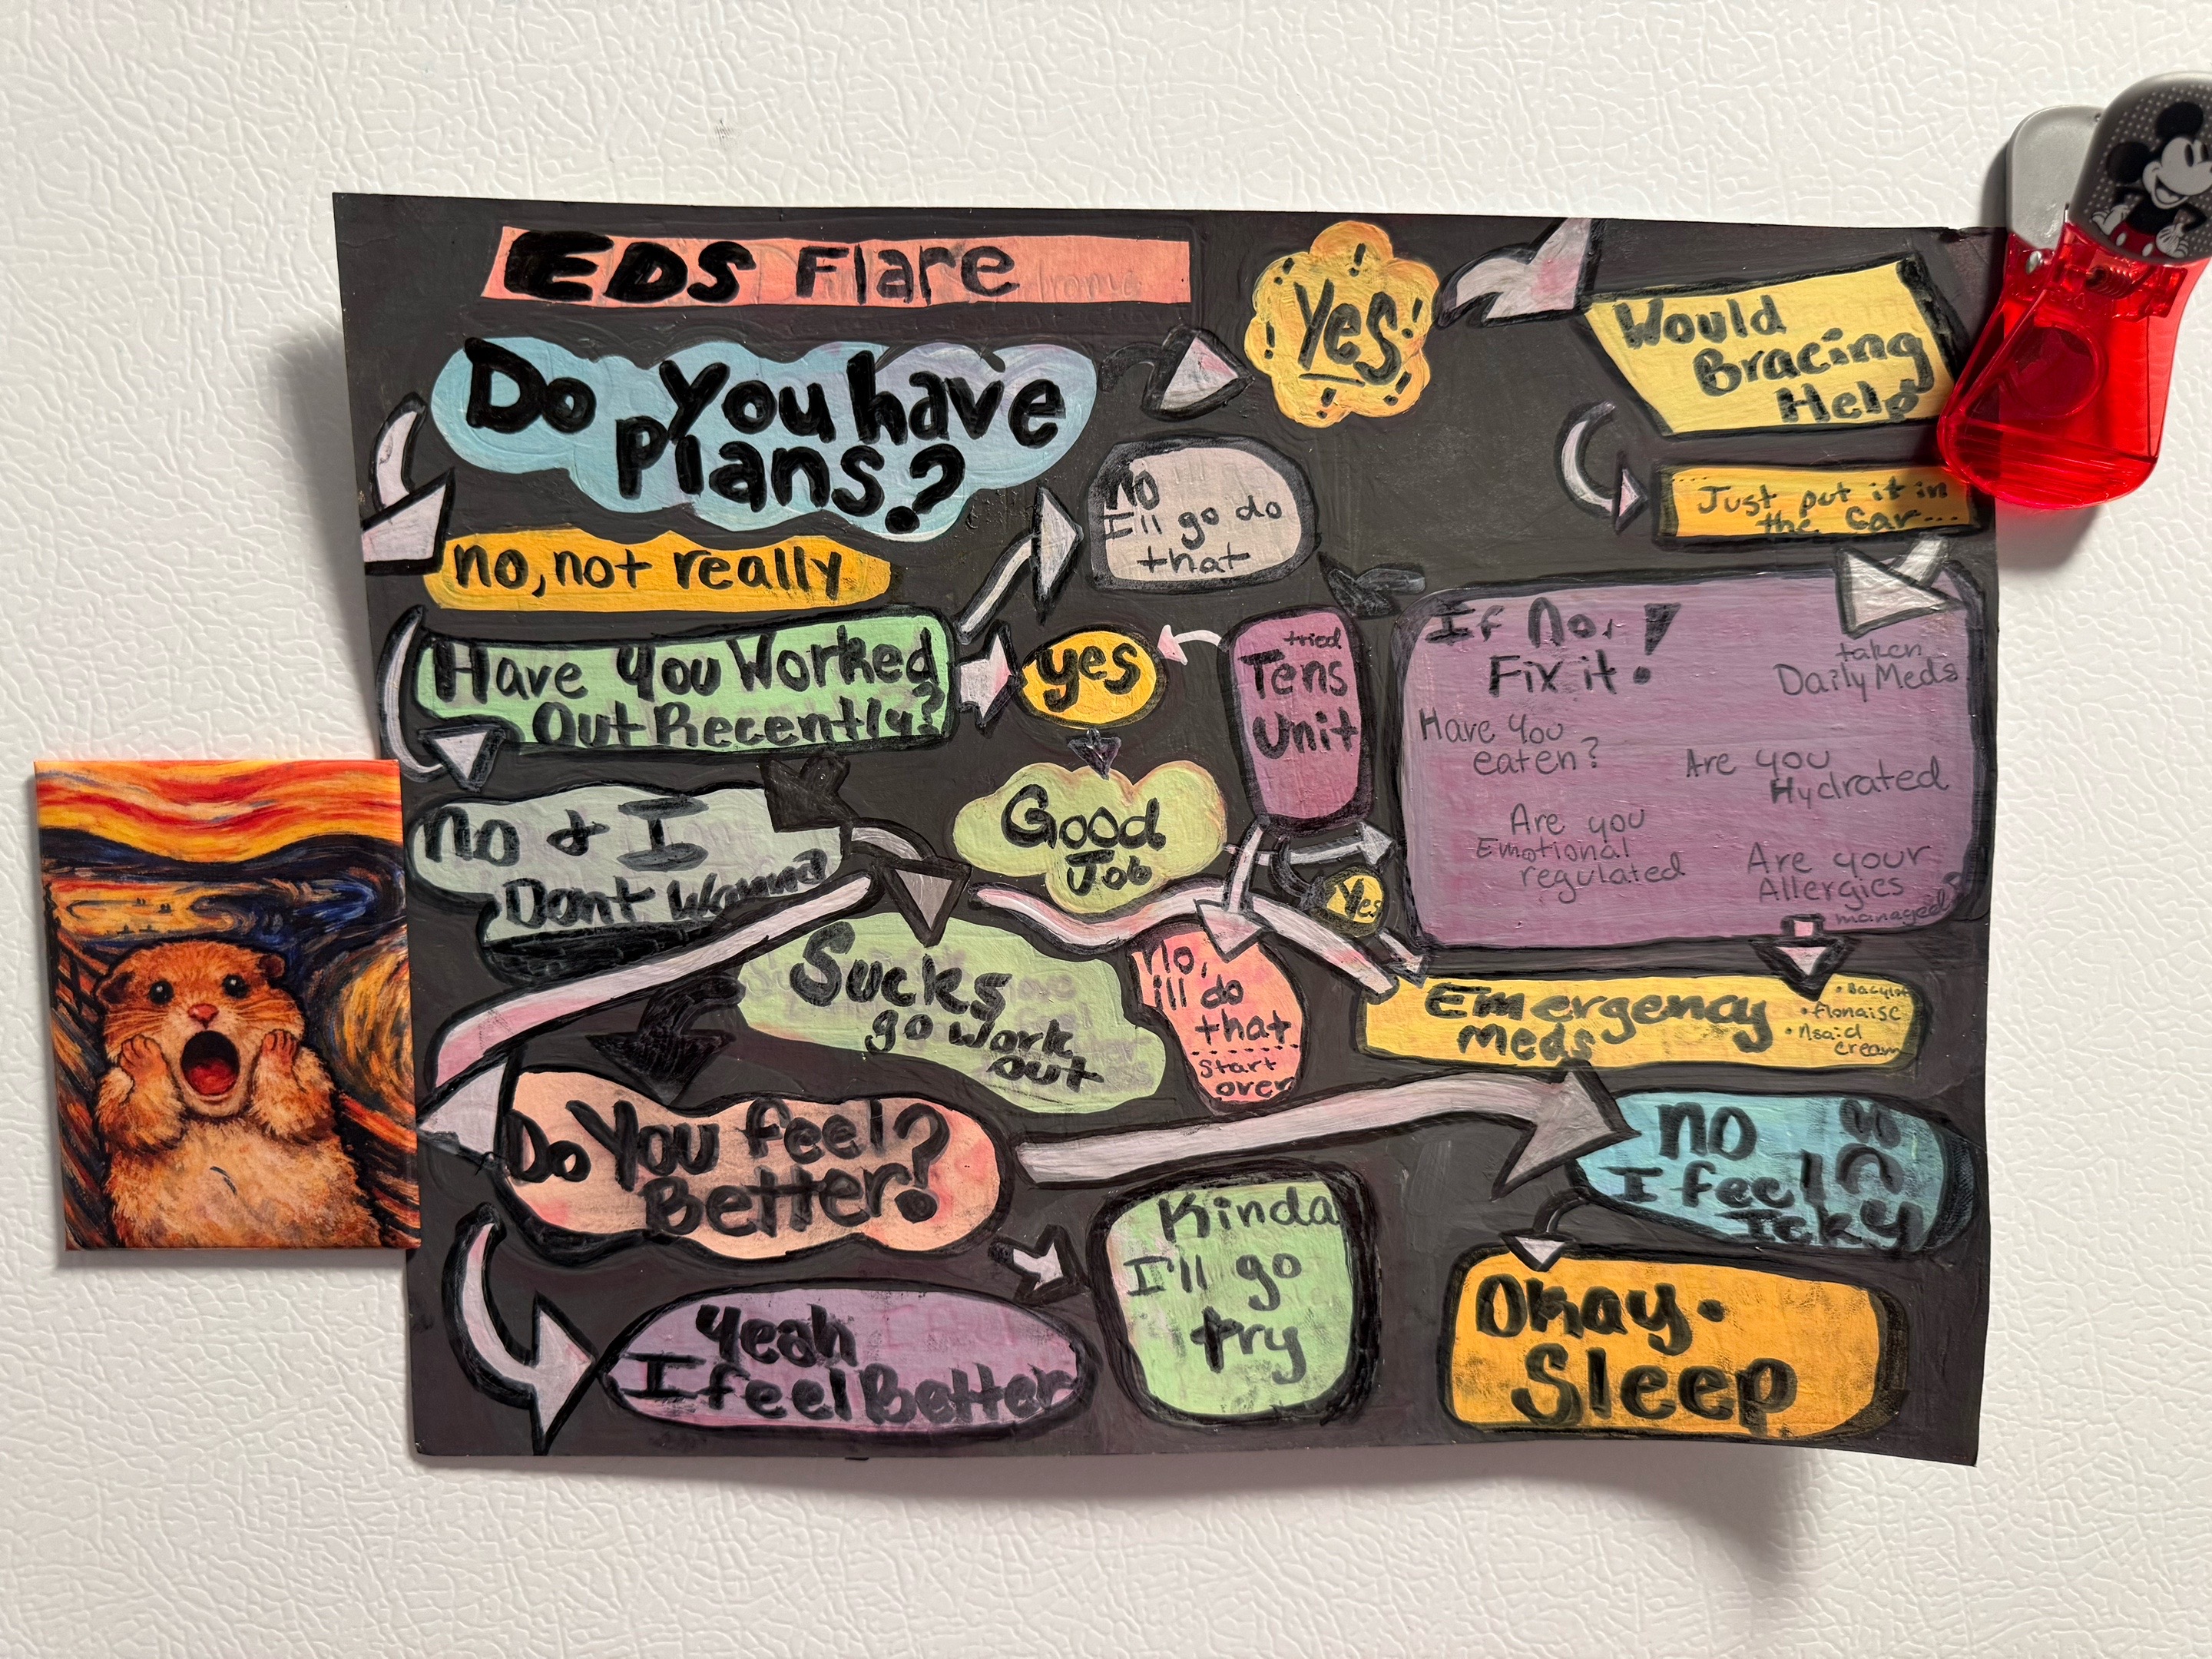 EDS Flare
Do you have
plans?
Yes!
Would
Bracing
Help
Just put it in
the Car...
no, not really
no
I'll go do
that
Have you Worked
Out Recently?
yes
tried
Tens
Unit
If No,!
Fix it!
taken
Daily Meds
Have you
eaten?
Are you
Hydrated
Are you
Emotional
regulated
Are your
Allergies
managed
No & I
Dont Wanna
Good
Job
Yes
Sucks
go work
out
No,
ill do
that
Start
over
Emergency
Meds
• flonaise
• Nsaid
cream
Do You feel
Better?
NO
I feel
Icky
Kinda
I'll go
try
Yeah
I feel Better
Okay.
Sleep